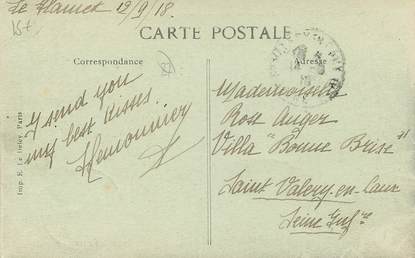 Le Hanock 19/9/18.
15+
CARTE POSTALE
Correspondance
Adresse
I send you
my best kisses.
Mademoiselle
Rose Auger
Villa "Bonne Brise"
Saint Valery-en-Caux
Seine Infre
Imp. E. Le Deley, Paris